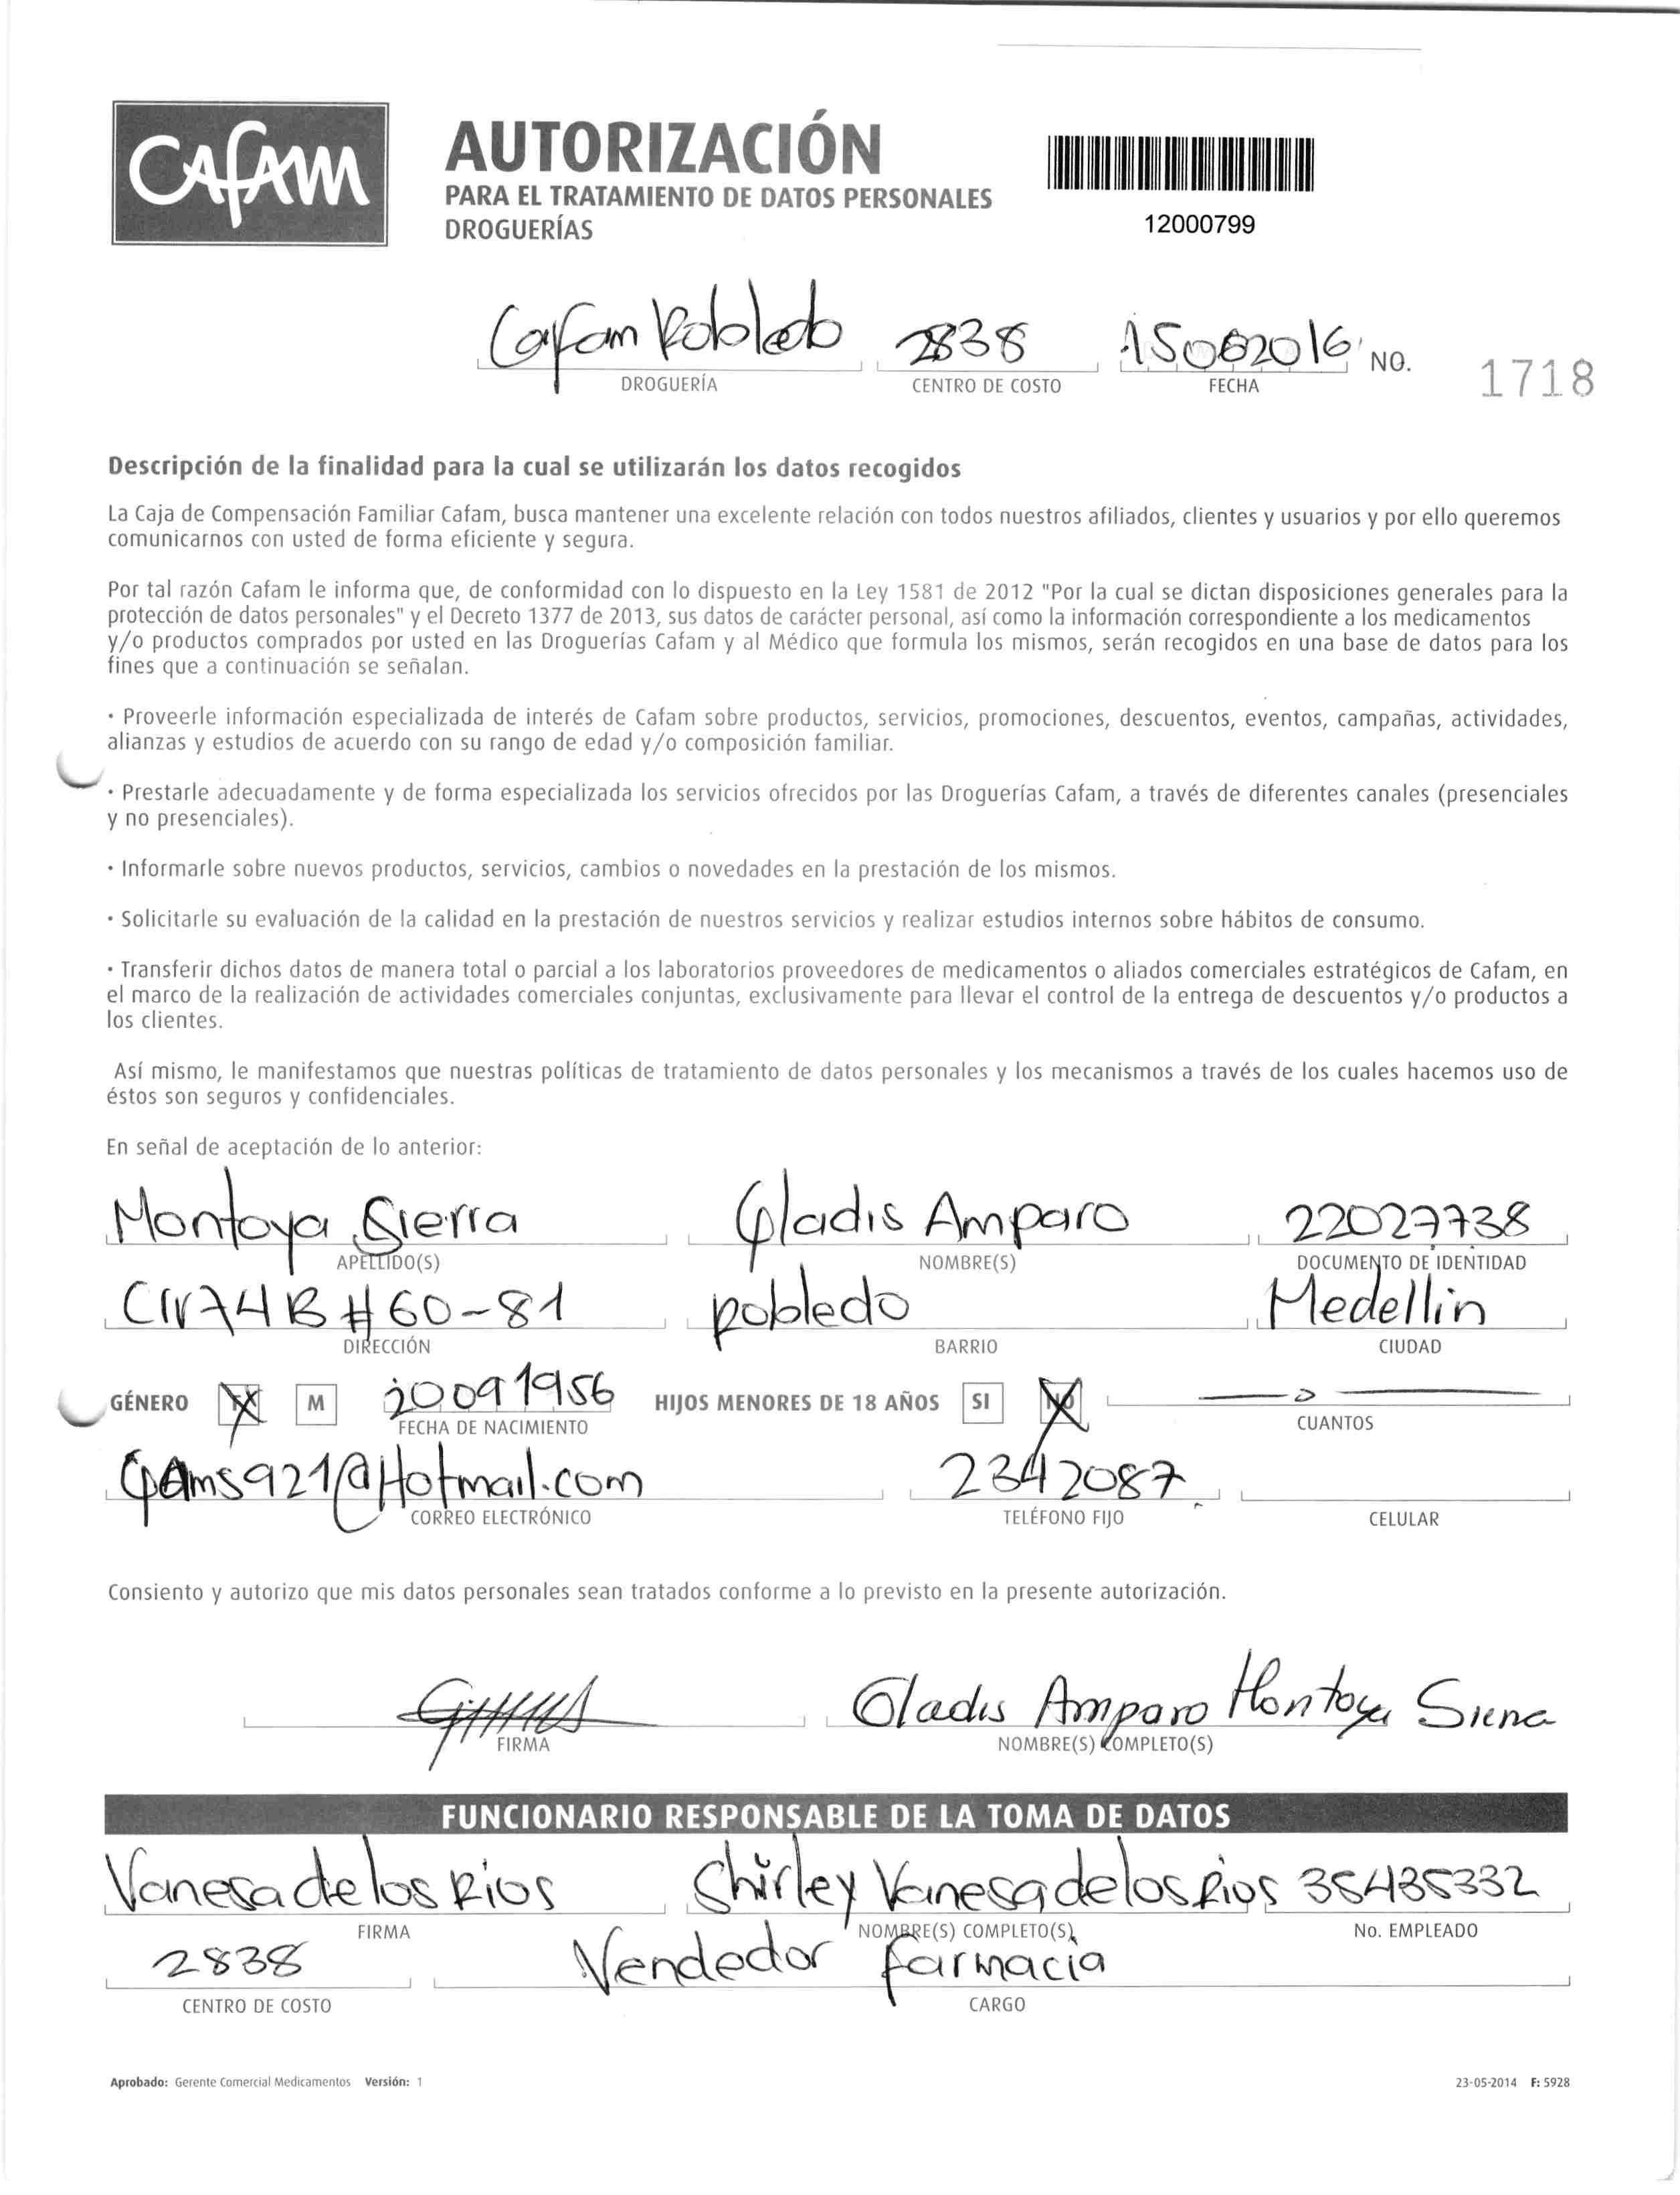 Cafam
AUTORIZACIÓN
PARA EL TRATAMIENTO DE DATOS PERSONALES
DROGUERÍAS
12000799
Cafam Robledo 2838 15062016 NO. 1718
DROGUERÍA CENTRO DE COSTO FECHA
Descripción de la finalidad para la cual se utilizarán los datos recogidos
La Caja de Compensación Familiar Cafam, busca mantener una excelente relación con todos nuestros afiliados, clientes y usuarios y por ello queremos
comunicarnos con usted de forma eficiente y segura.
Por tal razón Cafam le informa que, de conformidad con lo dispuesto en la Ley 1581 de 2012 "Por la cual se dictan disposiciones generales para la
protección de datos personales" y el Decreto 1377 de 2013, sus datos de carácter personal, así como la información correspondiente a los medicamentos
y/o productos comprados por usted en las Droguerías Cafam y al Médico que formula los mismos, serán recogidos en una base de datos para los
fines que a continuación se señalan.
· Proveerle información especializada de interés de Cafam sobre productos, servicios, promociones, descuentos, eventos, campañas, actividades,
alianzas y estudios de acuerdo con su rango de edad y/o composición familiar.
· Prestarle adecuadamente y de forma especializada los servicios ofrecidos por las Droguerías Cafam, a través de diferentes canales (presenciales
y no presenciales).
· Informarle sobre nuevos productos, servicios, cambios o novedades en la prestación de los mismos.
· Solicitarle su evaluación de la calidad en la prestación de nuestros servicios y realizar estudios internos sobre hábitos de consumo.
· Transferir dichos datos de manera total o parcial a los laboratorios proveedores de medicamentos o aliados comerciales estratégicos de Cafam, en
el marco de la realización de actividades comerciales conjuntas, exclusivamente para llevar el control de la entrega de descuentos y/o productos a
los clientes.
Así mismo, le manifestamos que nuestras políticas de tratamiento de datos personales y los mecanismos a través de los cuales hacemos uso de
éstos son seguros y confidenciales.
En señal de aceptación de lo anterior:
Montoya Sierra Gladis Amparo 22027738
APELLIDO(S) NOMBRE(S) DOCUMENTO DE IDENTIDAD
Cr 74B # 60-81 Robledo Medellin
DIRECCIÓN BARRIO CIUDAD
GÉNERO M 20091956 HIJOS MENORES DE 18 AÑOS SI NO 0
FECHA DE NACIMIENTO CUANTOS
GAms921@Hotmail.com 2342087
CORREO ELECTRÓNICO TELÉFONO FIJO CELULAR
Consiento y autorizo que mis datos personales sean tratados conforme a lo previsto en la presente autorización.
Gladis Amparo Montoya Sierra
FIRMA NOMBRE(S) COMPLETO(S)
FUNCIONARIO RESPONSABLE DE LA TOMA DE DATOS
Vanesa de los Rios Shirley Vanesa de los Rios 35435332
FIRMA NOMBRE(S) COMPLETO(S) No. EMPLEADO
2838 Vendedor farmacia
CENTRO DE COSTO CARGO
Aprobado: Gerente Comercial Medicamentos Versión: 1 23-05-2014 F: 5928